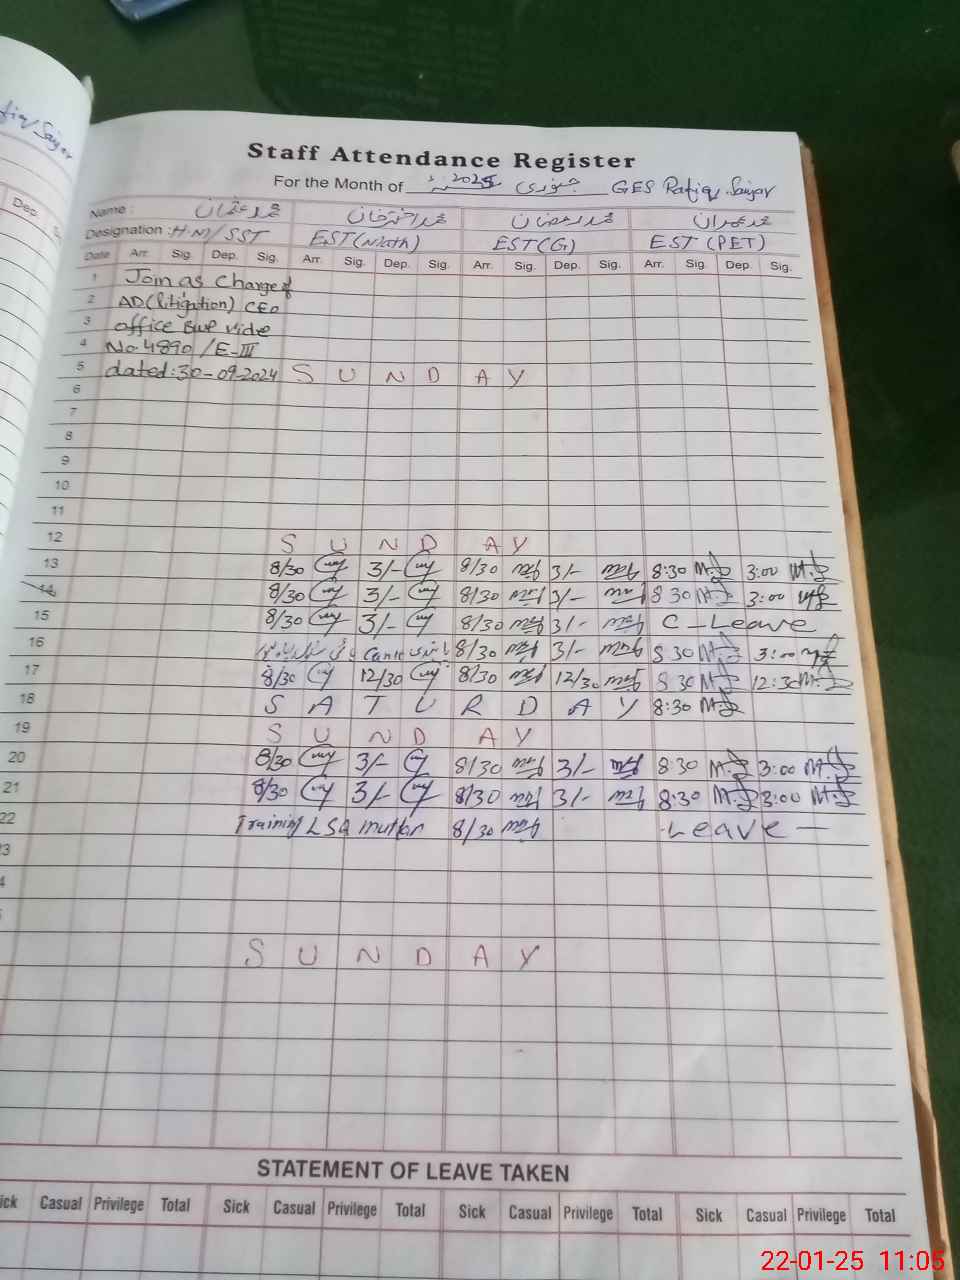 Staff Attendance Register
For the Month of جنوری 2025 GES Rafiq Sanjar
Name : محمد عثمان محمد اختر خان محمد رمضان محمد عمران
Designation : H.M/SST EST(Math) EST(G) EST (PET)
Date Arr. Sig. Dep. Sig. Arr. Sig. Dep. Sig. Arr. Sig. Dep. Sig. Arr. Sig. Dep. Sig.
1 Join as Charge of
2 AD(litigation) CEO
3 office BWP vide
4 No. 4890 /E-III
5 dated: 30-09-2024 S U N D A Y
6
7
8
9
10
11
12 S U N D A Y
13 8/30 3/- 8/30 3/- 8:30 3:00
14 8/30 3/- 8/30 3/- 8 30 3:00
15 8/30 3/- 8/30 3/- C-Leave
16 8/30 3/- 8 30 3:00
17 8/30 12/30 8/30 12/30 8 30 12:30
18 S A T U R D A Y 8:30
19 S U N D A Y
20 8/30 3/- 8/30 3/- 8:30 3:00
21 8/30 3/- 8/30 3/- 8:30 3:00
22 Training LSA 8/30 Leave —
S U N D A Y
STATEMENT OF LEAVE TAKEN
Casual Privilege Total Sick Casual Privilege Total Sick Casual Privilege Total Sick Casual Privilege Total
22-01-25 11:05